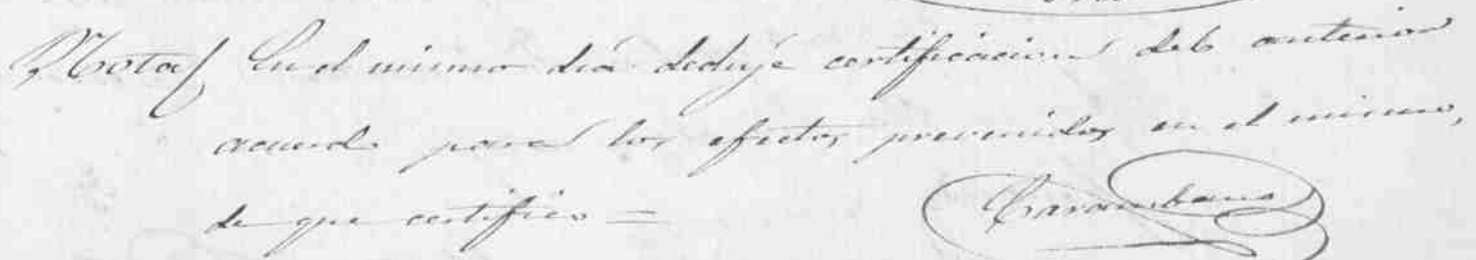 Nota/ En el mismo dia deduje certificacion del anterior
acuerdo para los efectos prevenidos en el mismo,
de que certifico =